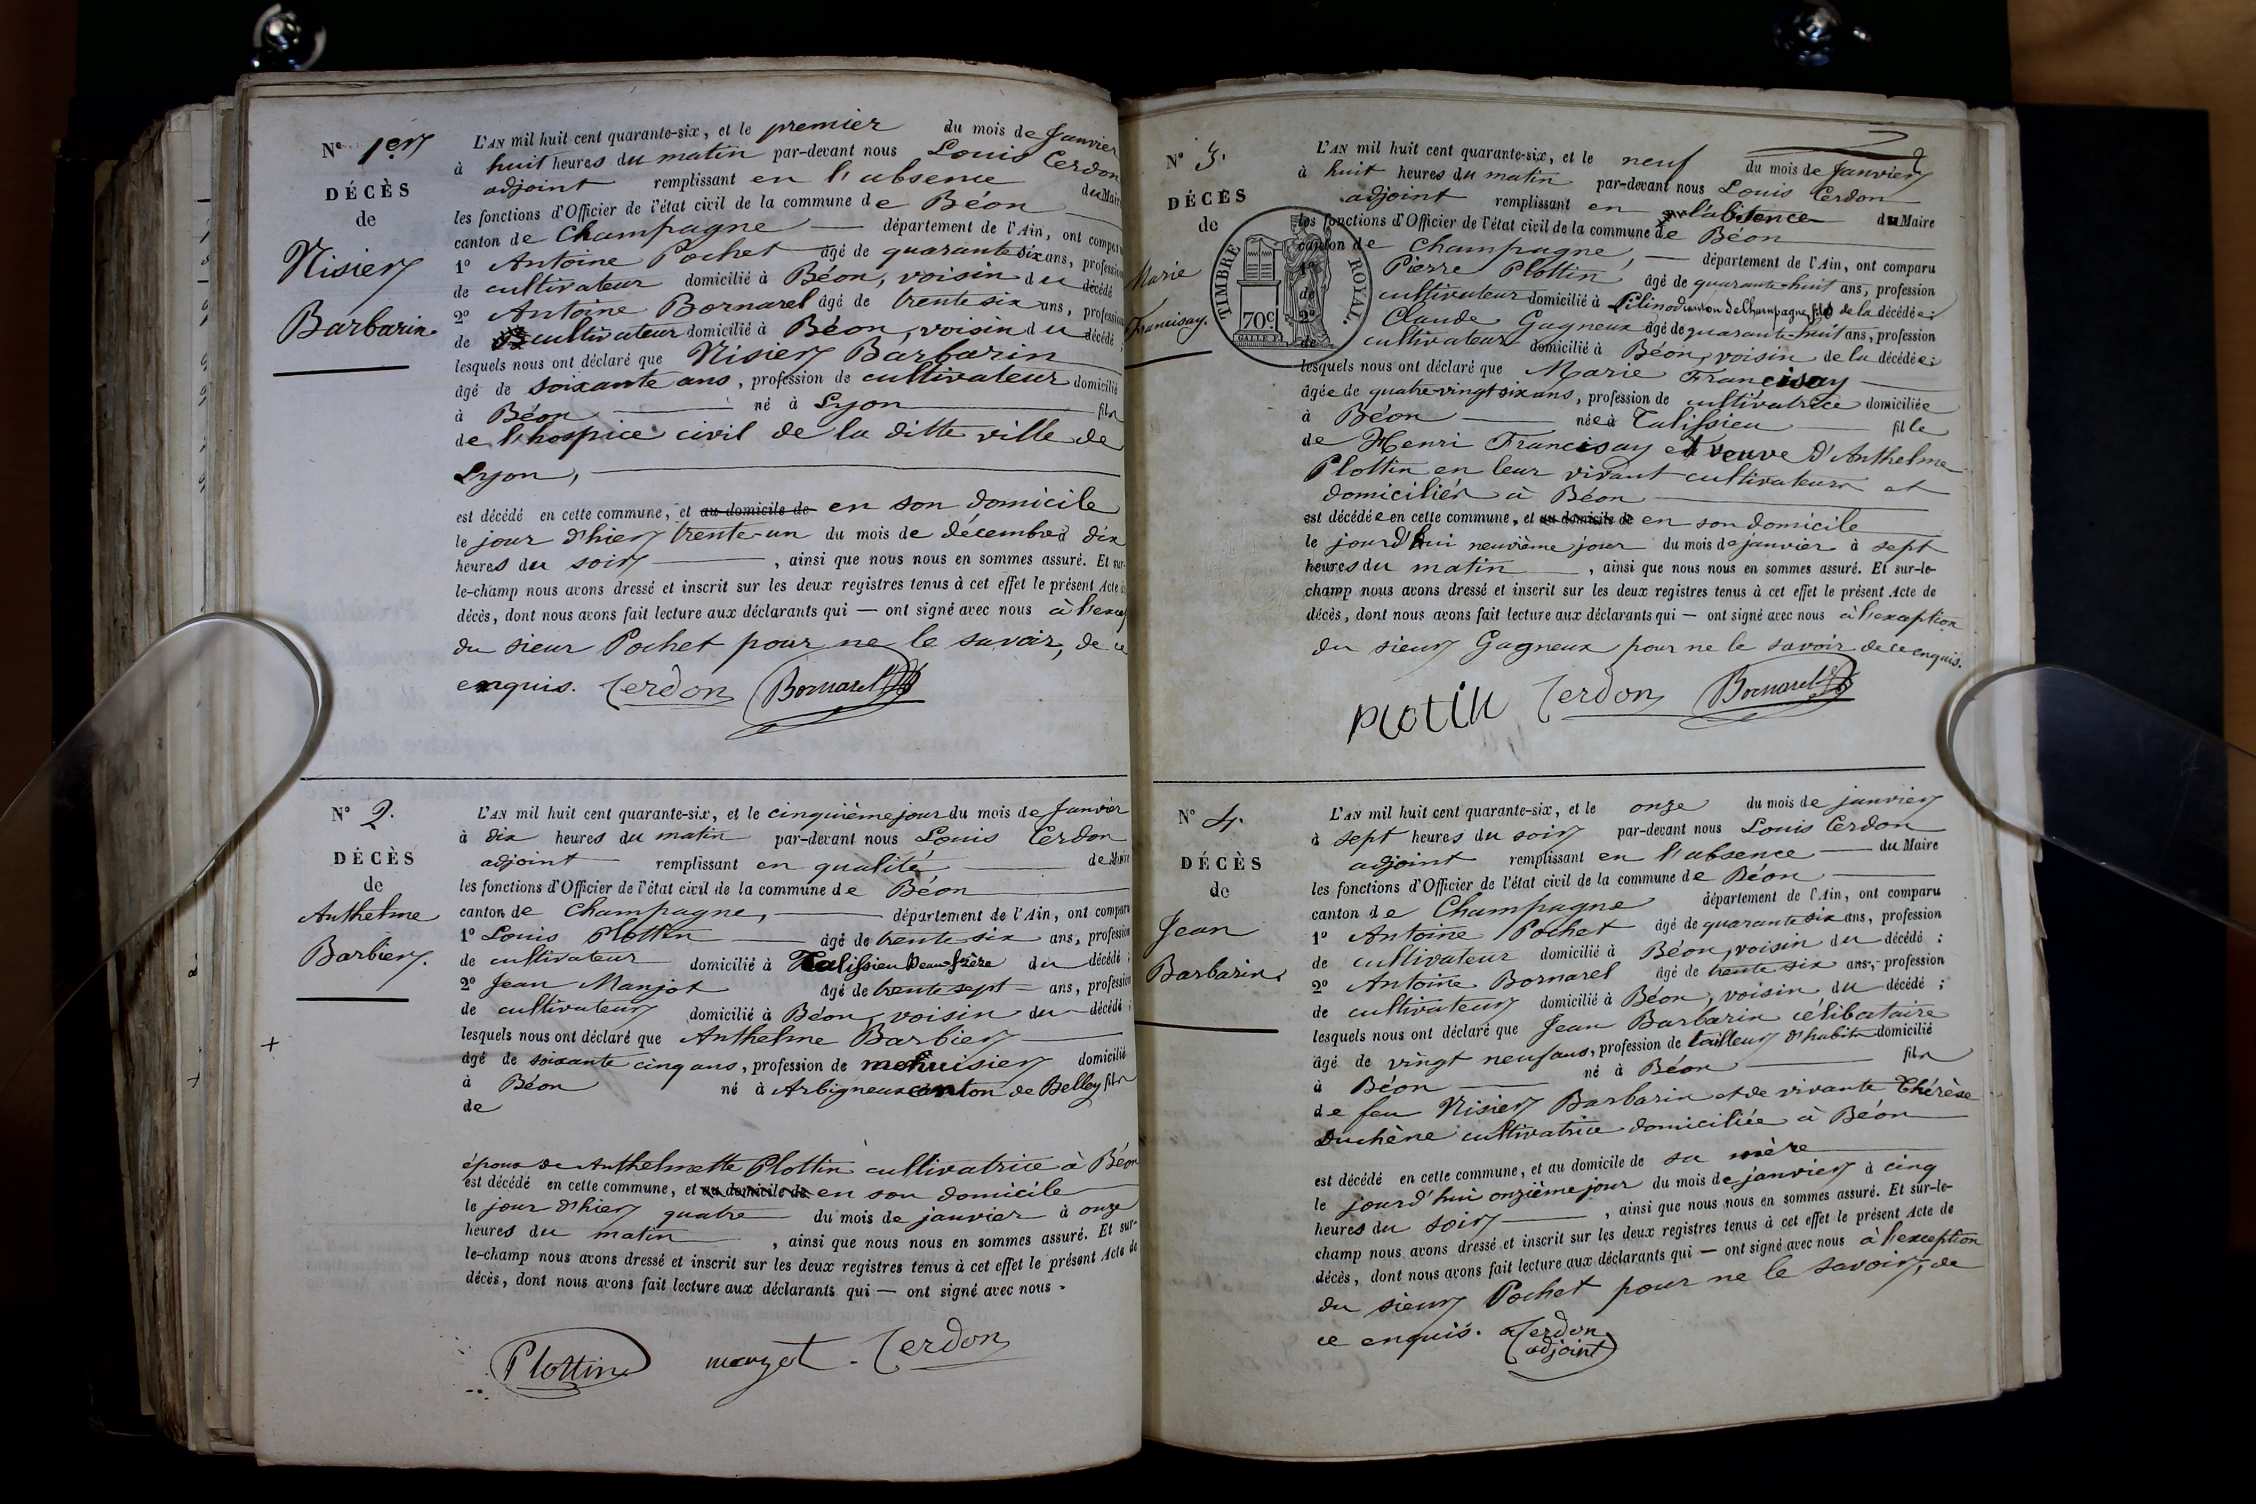 N° 1er
DÉCÈS
de
Nisier
Barbarin.
L'AN mil huit cent quarante-six, et le premier du mois de Janvier
à huit heures du matin par-devant nous Louis Cerdon
adjoint remplissant en l'absence du Maire
les fonctions d'Officier de l'état civil de la commune de Béon
canton de Champagne — département de l'Ain, ont comparu
1° Antoine Pochet âgé de quarante six ans, profession
de cultivateur domicilié à Béon, voisin du décédé
2° Antoine Bornarel âgé de trente six ans, profession
de cultivateur domicilié à Béon, voisin du décédé ;
lesquels nous ont déclaré que Nisier Barbarin
âgé de soixante ans, profession de cultivateur domicilié
à Béon né à Lyon fils
de l'hospice civil de la ditte ville de
Lyon,
est décédé en cette commune, et au domicile de en son domicile
le jour d'hier trente-un du mois de décembre à dix
heures du soir , ainsi que nous nous en sommes assuré. Et sur-
le-champ nous avons dressé et inscrit sur les deux registres tenus à cet effet le présent Acte de
décès, dont nous avons fait lecture aux déclarants qui — ont signé avec nous à l'excep
du sieur Pochet pour ne le savoir, de ce
enquis. Cerdon Bornarel
N° 2.
DÉCÈS
de
Anthelme
Barbier.
L'AN mil huit cent quarante-six, et le cinquième jour du mois de Janvier
à dix heures du matin par-devant nous Louis Cerdon
adjoint remplissant en qualité de Maire
les fonctions d'Officier de l'état civil de la commune de Béon
canton de Champagne, département de l'Ain, ont comparu
1° Louis Plottin âgé de trente six ans, profession
de cultivateur domicilié à Talissieu beau-frère du décédé ;
2° Jean Manjot âgé de trente sept ans, profession
de cultivateur domicilié à Béon, voisin du décédé ;
lesquels nous ont déclaré que Anthelme Barbier
âgé de soixante cinq ans, profession de menuisier domicilié
à Béon né à Arbigneux canton de Belley fils
de
époux de Anthelmette Plottin cultivatrice à Béon
est décédé en cette commune, et au domicile de en son domicile
le jour d'hier quatre du mois de janvier à onze
heures du matin , ainsi que nous nous en sommes assuré. Et sur-
le-champ nous avons dressé et inscrit sur les deux registres tenus à cet effet le présent Acte de
décès, dont nous avons fait lecture aux déclarants qui — ont signé avec nous .
Plottin manjot Cerdon
N° 3.
DÉCÈS
de
Marie
Francisay.
TIMBRE ROYAL.
70c
L'AN mil huit cent quarante-six, et le neuf du mois de Janvier
à huit heures du matin par-devant nous Louis Cerdon
adjoint remplissant en l'absence du Maire
les fonctions d'Officier de l'état civil de la commune de Béon
canton de Champagne, — département de l'Ain, ont comparu
1° Pierre Plottin âgé de quarante-huit ans, profession
de cultivateur domicilié à Lilinod canton de Champagne, fils de la décédée ;
2° Claude Gagneux âgé de quarante-huit ans, profession
de cultivateur domicilié à Béon, voisin de la décédée ;
lesquels nous ont déclaré que Marie Francisay
âgée de quatre vingt six ans, profession de cultivatrice domiciliée
à Béon née à Talissieu fille
de Henri Francisay et veuve d'Anthelme
Plottin en leur vivant cultivateurs et
domiciliés à Béon
est décédée en cette commune, et au domicile de en son domicile
le jourd'hui neuvième jour du mois de janvier à sept
heures du matin , ainsi que nous nous en sommes assuré. Et sur-le-
champ nous avons dressé et inscrit sur les deux registres tenus à cet effet le présent Acte de
décès, dont nous avons fait lecture aux déclarants qui — ont signé avec nous à l'exception
du sieur Gagneux pour ne le savoir de ce enquis.
Plotin Cerdon Bornarel
N° 4.
DÉCÈS
de
Jean
Barbarin.
L'AN mil huit cent quarante-six, et le onze du mois de janvier
à sept heures du soir par-devant nous Louis Cerdon
adjoint remplissant en l'absence du Maire
les fonctions d'Officier de l'état civil de la commune de Béon
canton de Champagne département de l'Ain, ont comparu
1° Antoine Pochet âgé de quarante six ans, profession
de cultivateur domicilié à Béon, voisin du décédé ;
2° Antoine Bornarel âgé de trente six ans, profession
de cultivateur domicilié à Béon, voisin du décédé ;
lesquels nous ont déclaré que Jean Barbarin célibataire
âgé de vingt neuf ans, profession de tailleur d'habits domicilié
à Béon né à Béon fils
de feu Nisier Barbarin et de vivante Thérèse
Duchène cultivatrice domiciliée à Béon
est décédé en cette commune, et au domicile de sa mère
le jourd'hui onzième jour du mois de janvier à cinq
heures du soir , ainsi que nous nous en sommes assuré. Et sur-le-
champ nous avons dressé et inscrit sur les deux registres tenus à cet effet le présent Acte de
décès, dont nous avons fait lecture aux déclarants qui — ont signé avec nous à l'exception
du sieur Pochet pour ne le savoir, de
ce enquis. Cerdon
adjoint